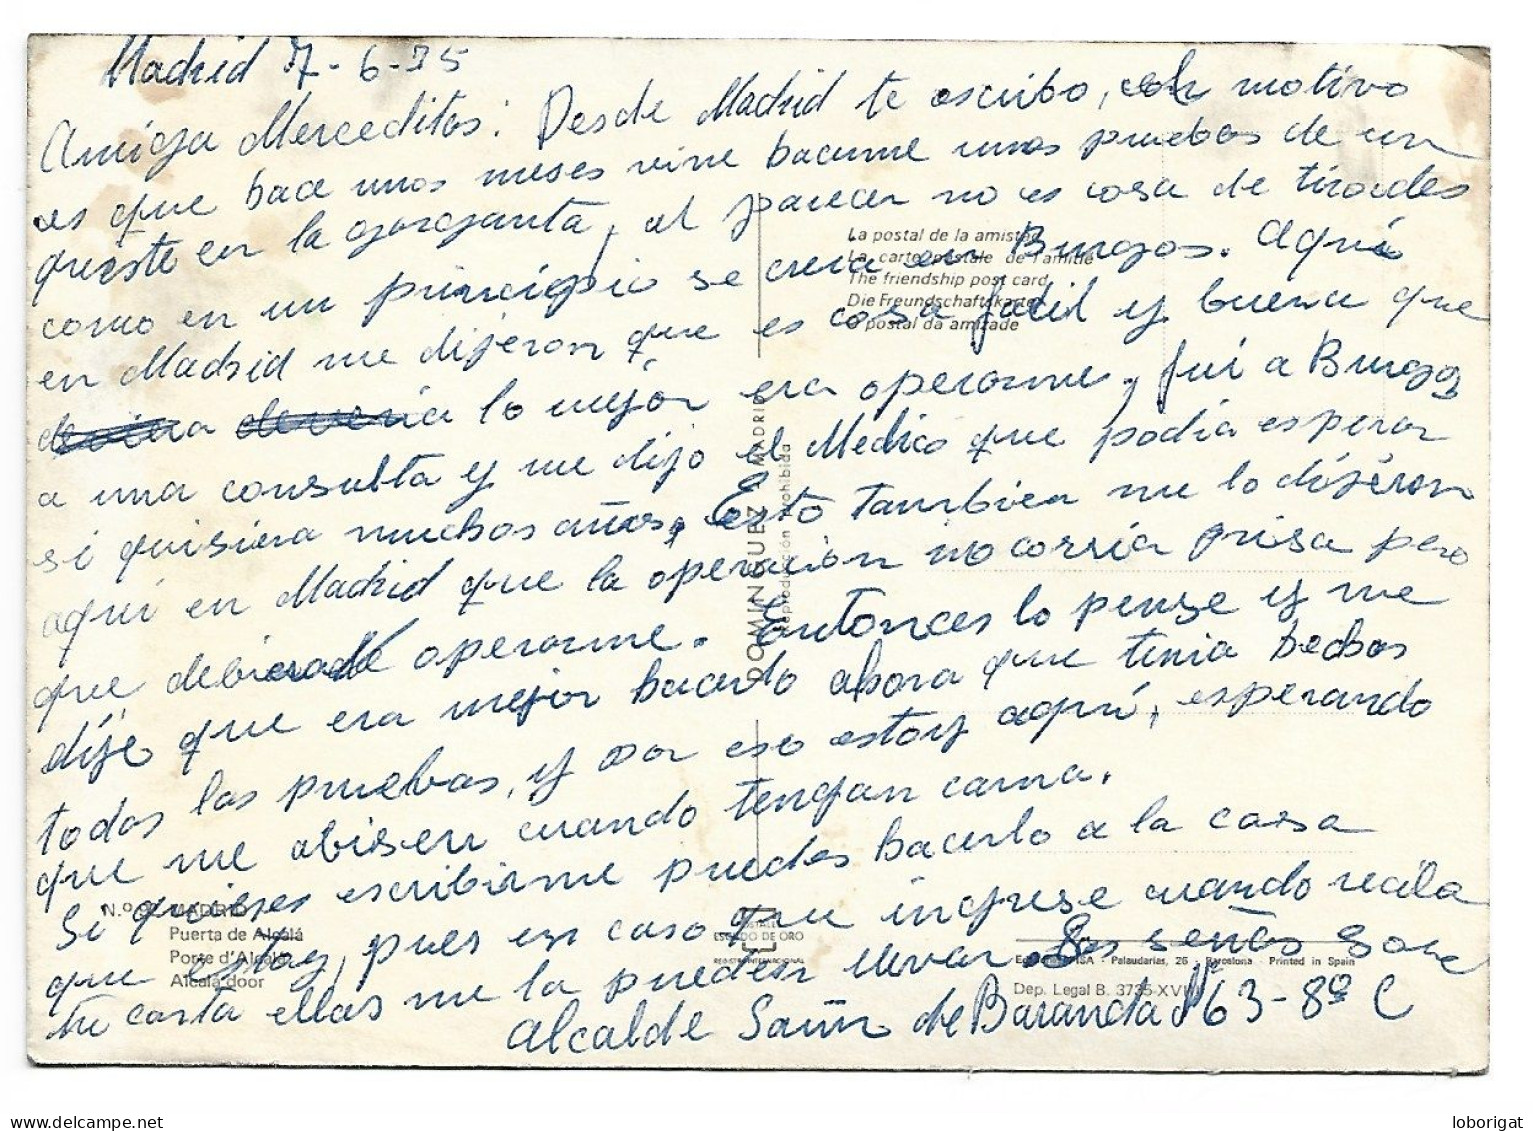 Madrid 7-6-75
Amiga Merceditas: Desde Madrid te escribo, con motivo
es que hace unos meses vine hacerme unas pruebas de un
quiste en la garganta, al parecer no es cosa de tiroides
como en un principio se creia en Burgos. Aquí
en Madrid me dijeron que es cosa fácil y buena que
lo mejór era operarme, fuí a Burgos
a una consulta y me dijo el Medico que podia esperar
si quisiera muchos años. Esto tambien me lo dijéron
aquí en Madrid que la operación no corria prisa pero
que debiera operarme. Entonces lo pense y me
dije que era mejor hacerlo ahora que tenia hechas
todas las pruebas, y por eso estoy aquí, esperando
que me abisen cuando tengan cama.
Si quieres escribirme puedes hacerlo a la casa
que estoy, pues en caso que ingrese cuando reciba
tu carta ellas me la pueden llevar. Las señas son
Alcalde Sainz de Baranda Nº 63-8º C
La postal de la amistad
La carte postale de l'amitié
The friendship post card
Die Freundschaftskarte
O postal da amizade
DOMINGUEZ - MADRID
Reproducción prohibida
N.º MADRID
Puerta de Alcalá
Porte d'Alcalá
Alcalá door
POSTALES
ESCUDO DE ORO
REGISTRO INTERNACIONAL
FISA - Palaudarias, 26 - Barcelona - Printed in Spain
Dep. Legal B. 3735-XVIII
loborigat